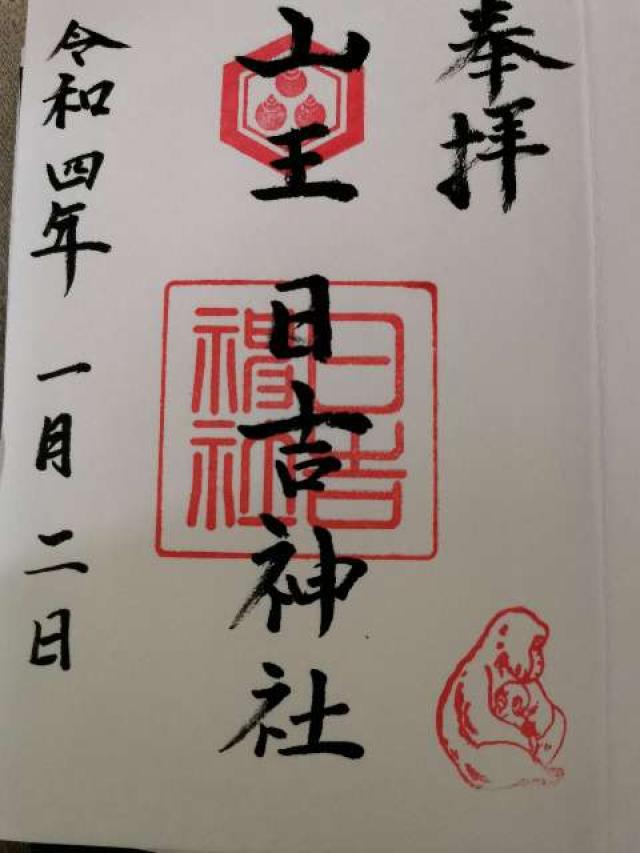 奉拝
山王日吉神社
日吉神社
令和四年一月二日